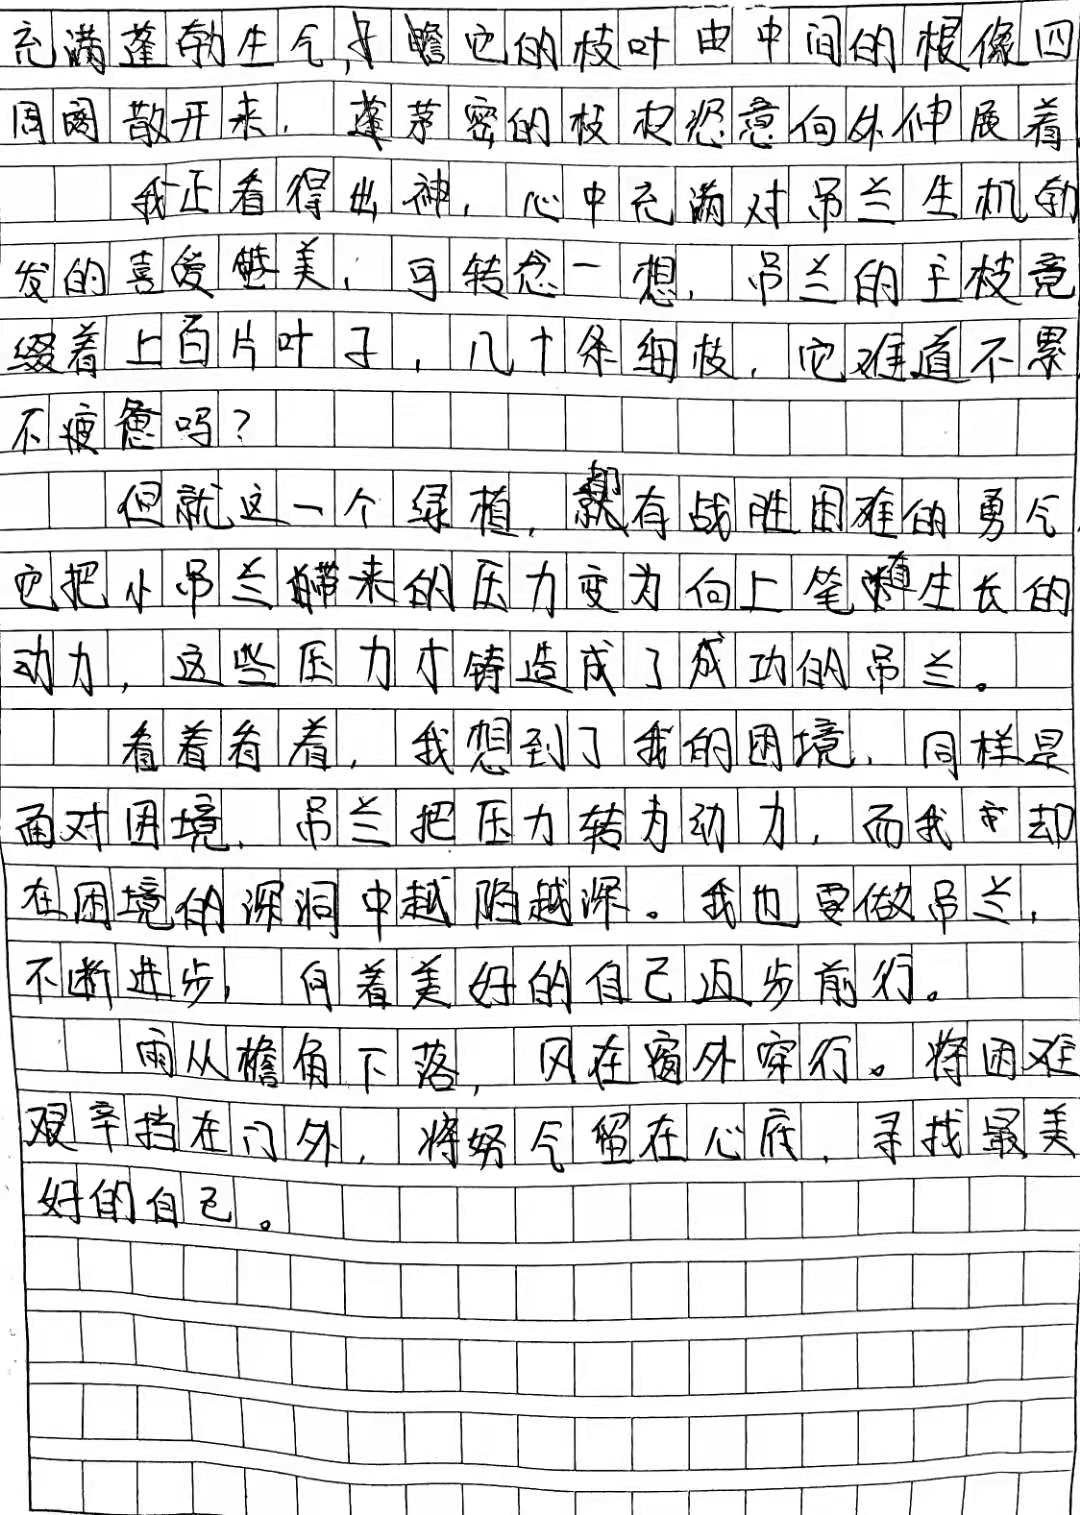 充满蓬勃生气，瞻它的枝叶由中间的根像四
周散开来，蓬茅密的枝杈恣意向外伸展着
我正看得出神，心中充满对吊兰生机勃
发的喜爱赞美，可转念一想，吊兰的主枝竟
缀着上百片叶子，几十条细枝，它难道不累
不疲惫吗？
但就这一个绿植，都有战胜困难的勇气
它把小吊兰带来的压力变为向上笔直生长的
动力，这些压力才铸造成了成功的吊兰。
看着看着，我想到了我的困境，同样是
面对困境，吊兰把压力转为动力，而我却
在困境的深洞中越陷越深。我也要做吊兰，
不断进步，向着美好的自己迈步前行。
雨从檐角下落，风在窗外穿行。将困难
艰辛挡在门外，将努气留在心底，寻找最美
好的自己。